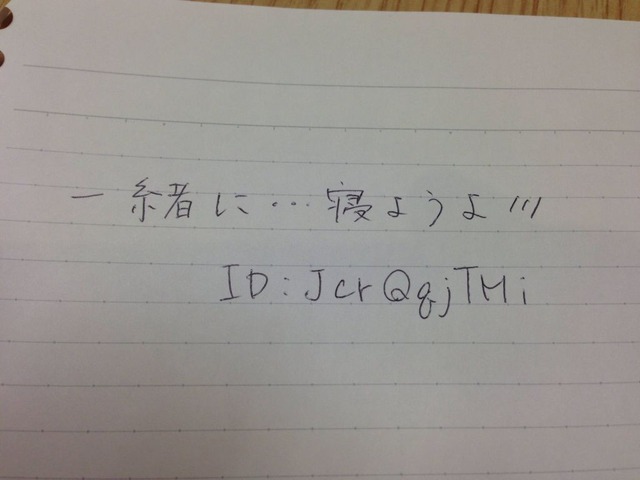 一緒に…寝ようよ///
ID:JcrQqjTMi